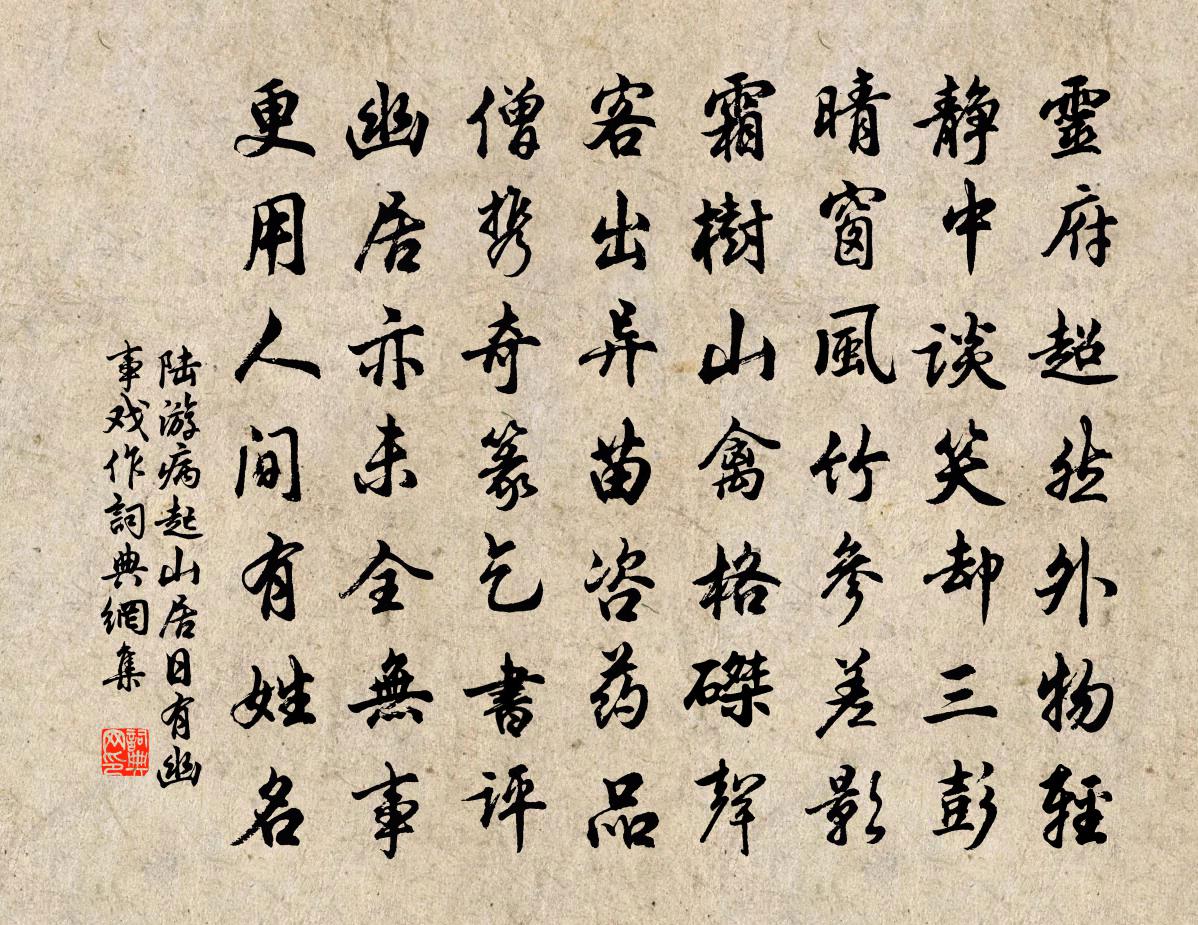 靈府超然外物輕
靜中談笑却三彭
晴窗風竹參差影
霜樹山禽格磔聲
客出异苗咨药品
僧携奇篆乞書評
幽居亦未全無事
更用人间有姓名
陆游病起山居日有幽
事戏作詞典網集
詞典
网印